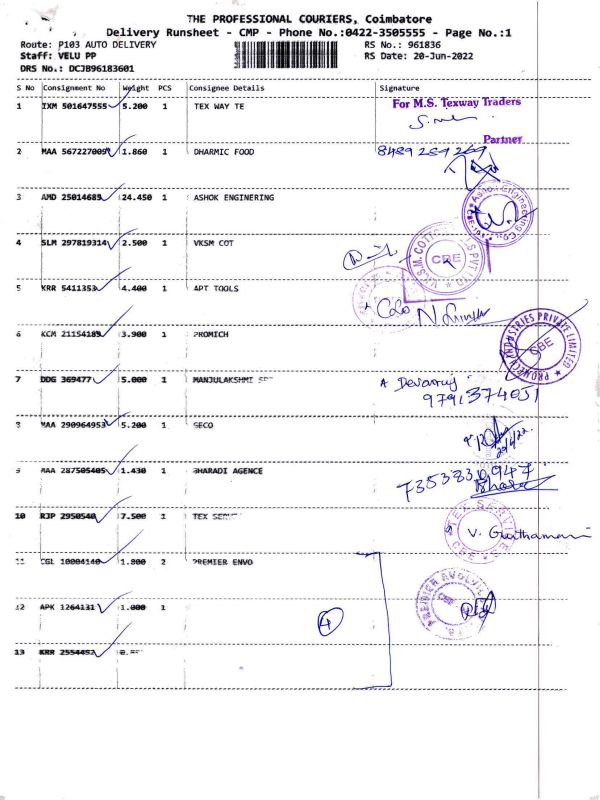 THE PROFESSIONAL COURIERS, Coimbatore
Delivery Runsheet - CMP - Phone No.:0422-3505555 - Page No.:1
Route: P103 AUTO DELIVERY RS No.: 961836
Staff: VELU PP RS Date: 20-Jun-2022
DRS No.: DCJB96183601
S No Consignment No Weight PCS Consignee Details Signature
1 IXM 501647555 5.200 1 TEX WAY TE
For M.S. Texway Traders
Partner
2 MAA 567227009 1.860 1 DHARMIC FOOD
3 AMD 25014685 24.450 1 ASHOK ENGINERING
4 SLM 297819314 2.500 1 VKSM COT
CBE
5 KRR 5411353 4.400 1 APT TOOLS
6 KCM 21154185 3.900 1 PROMICH
CBE
7 DDG 369477 5.000 1 MANJULAKSHMI
A Devaraj
9791374051
8 MAA 290964953 5.200 1 GECO
9 MAA 287505405 1.430 1 BHARADI AGENCE
7353830947
10 RJP 2950540 7.500 1 TEX
STEX SERVI
CBE
V. Gowthaman
11 CGL 10004140 1.800 2 PREMIER ENVO
12 APK 1264131 1.000 1
4
13 KRR 2554492